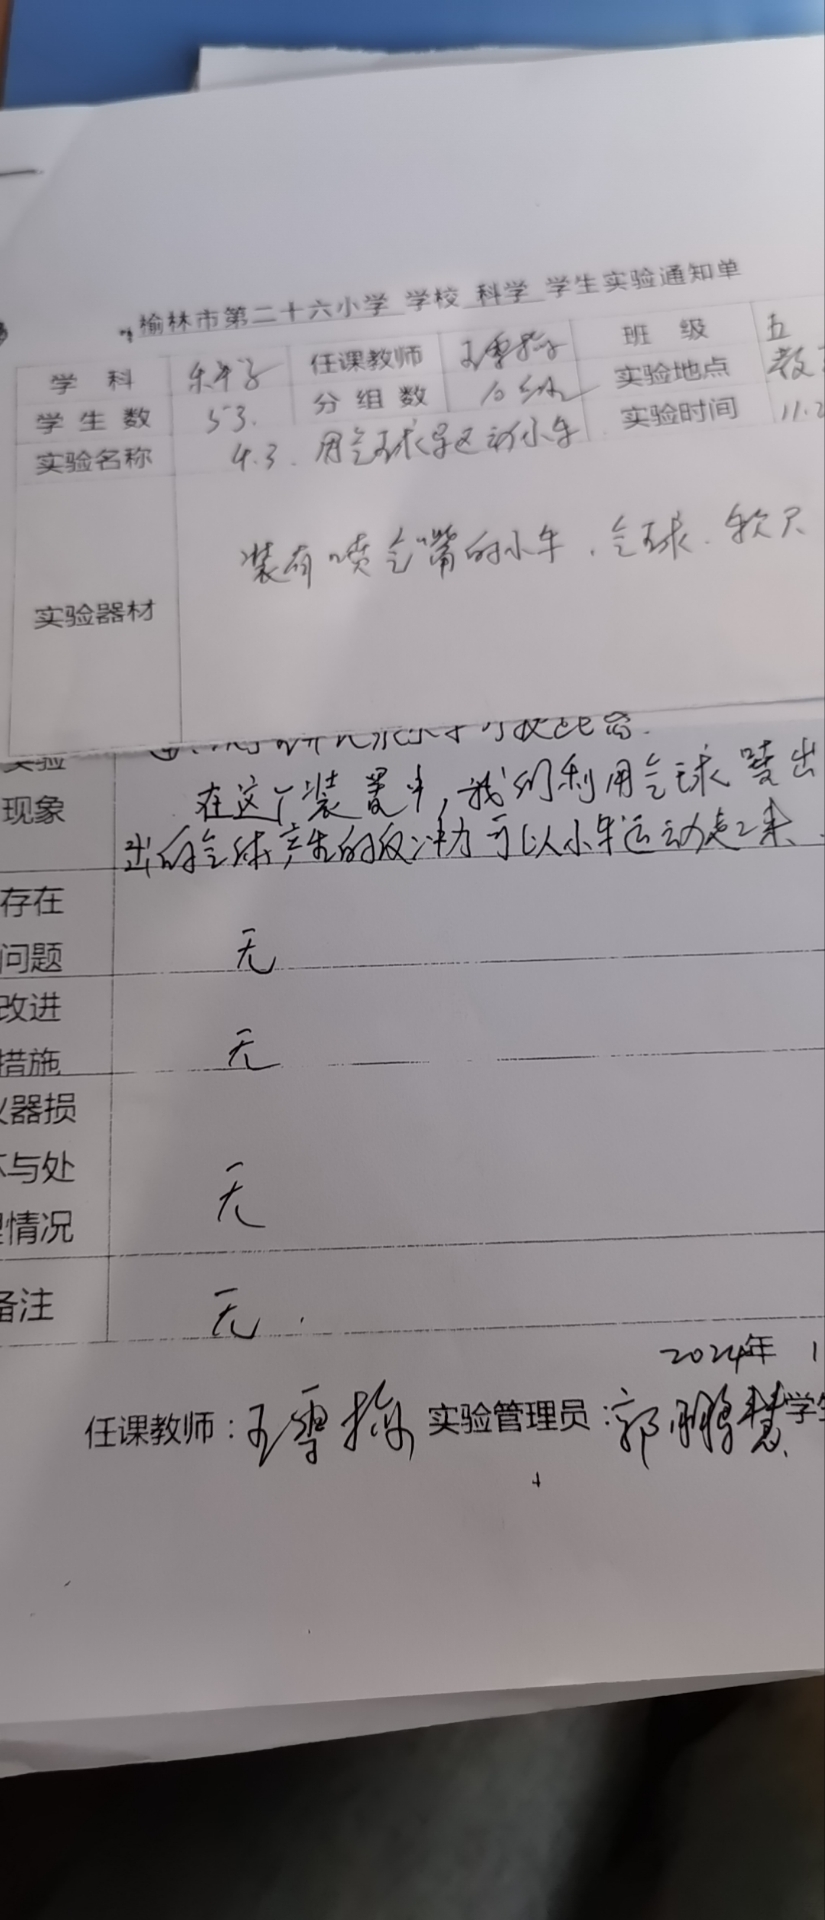 榆林市第二十六小学 学校 科学 学生实验通知单
学 科 科学 任课教师 王雪梅 班 级 五
学 生 数 53. 分 组 数 10组 实验地点 教
实验名称 4.3. 用气球驱动小车 实验时间 11.2
装有喷气嘴的小车、气球、软尺
实验器材
实验
现象 在这个装置中,我们利用气球喷出
出的气体产生的反冲力可以小车运动起来
存在
问题 无
改进
措施 无
仪器损
坏与处 无
理情况
备注 无.
2024年 1
任课教师:王雪梅 实验管理员:郭鹏慧 学生